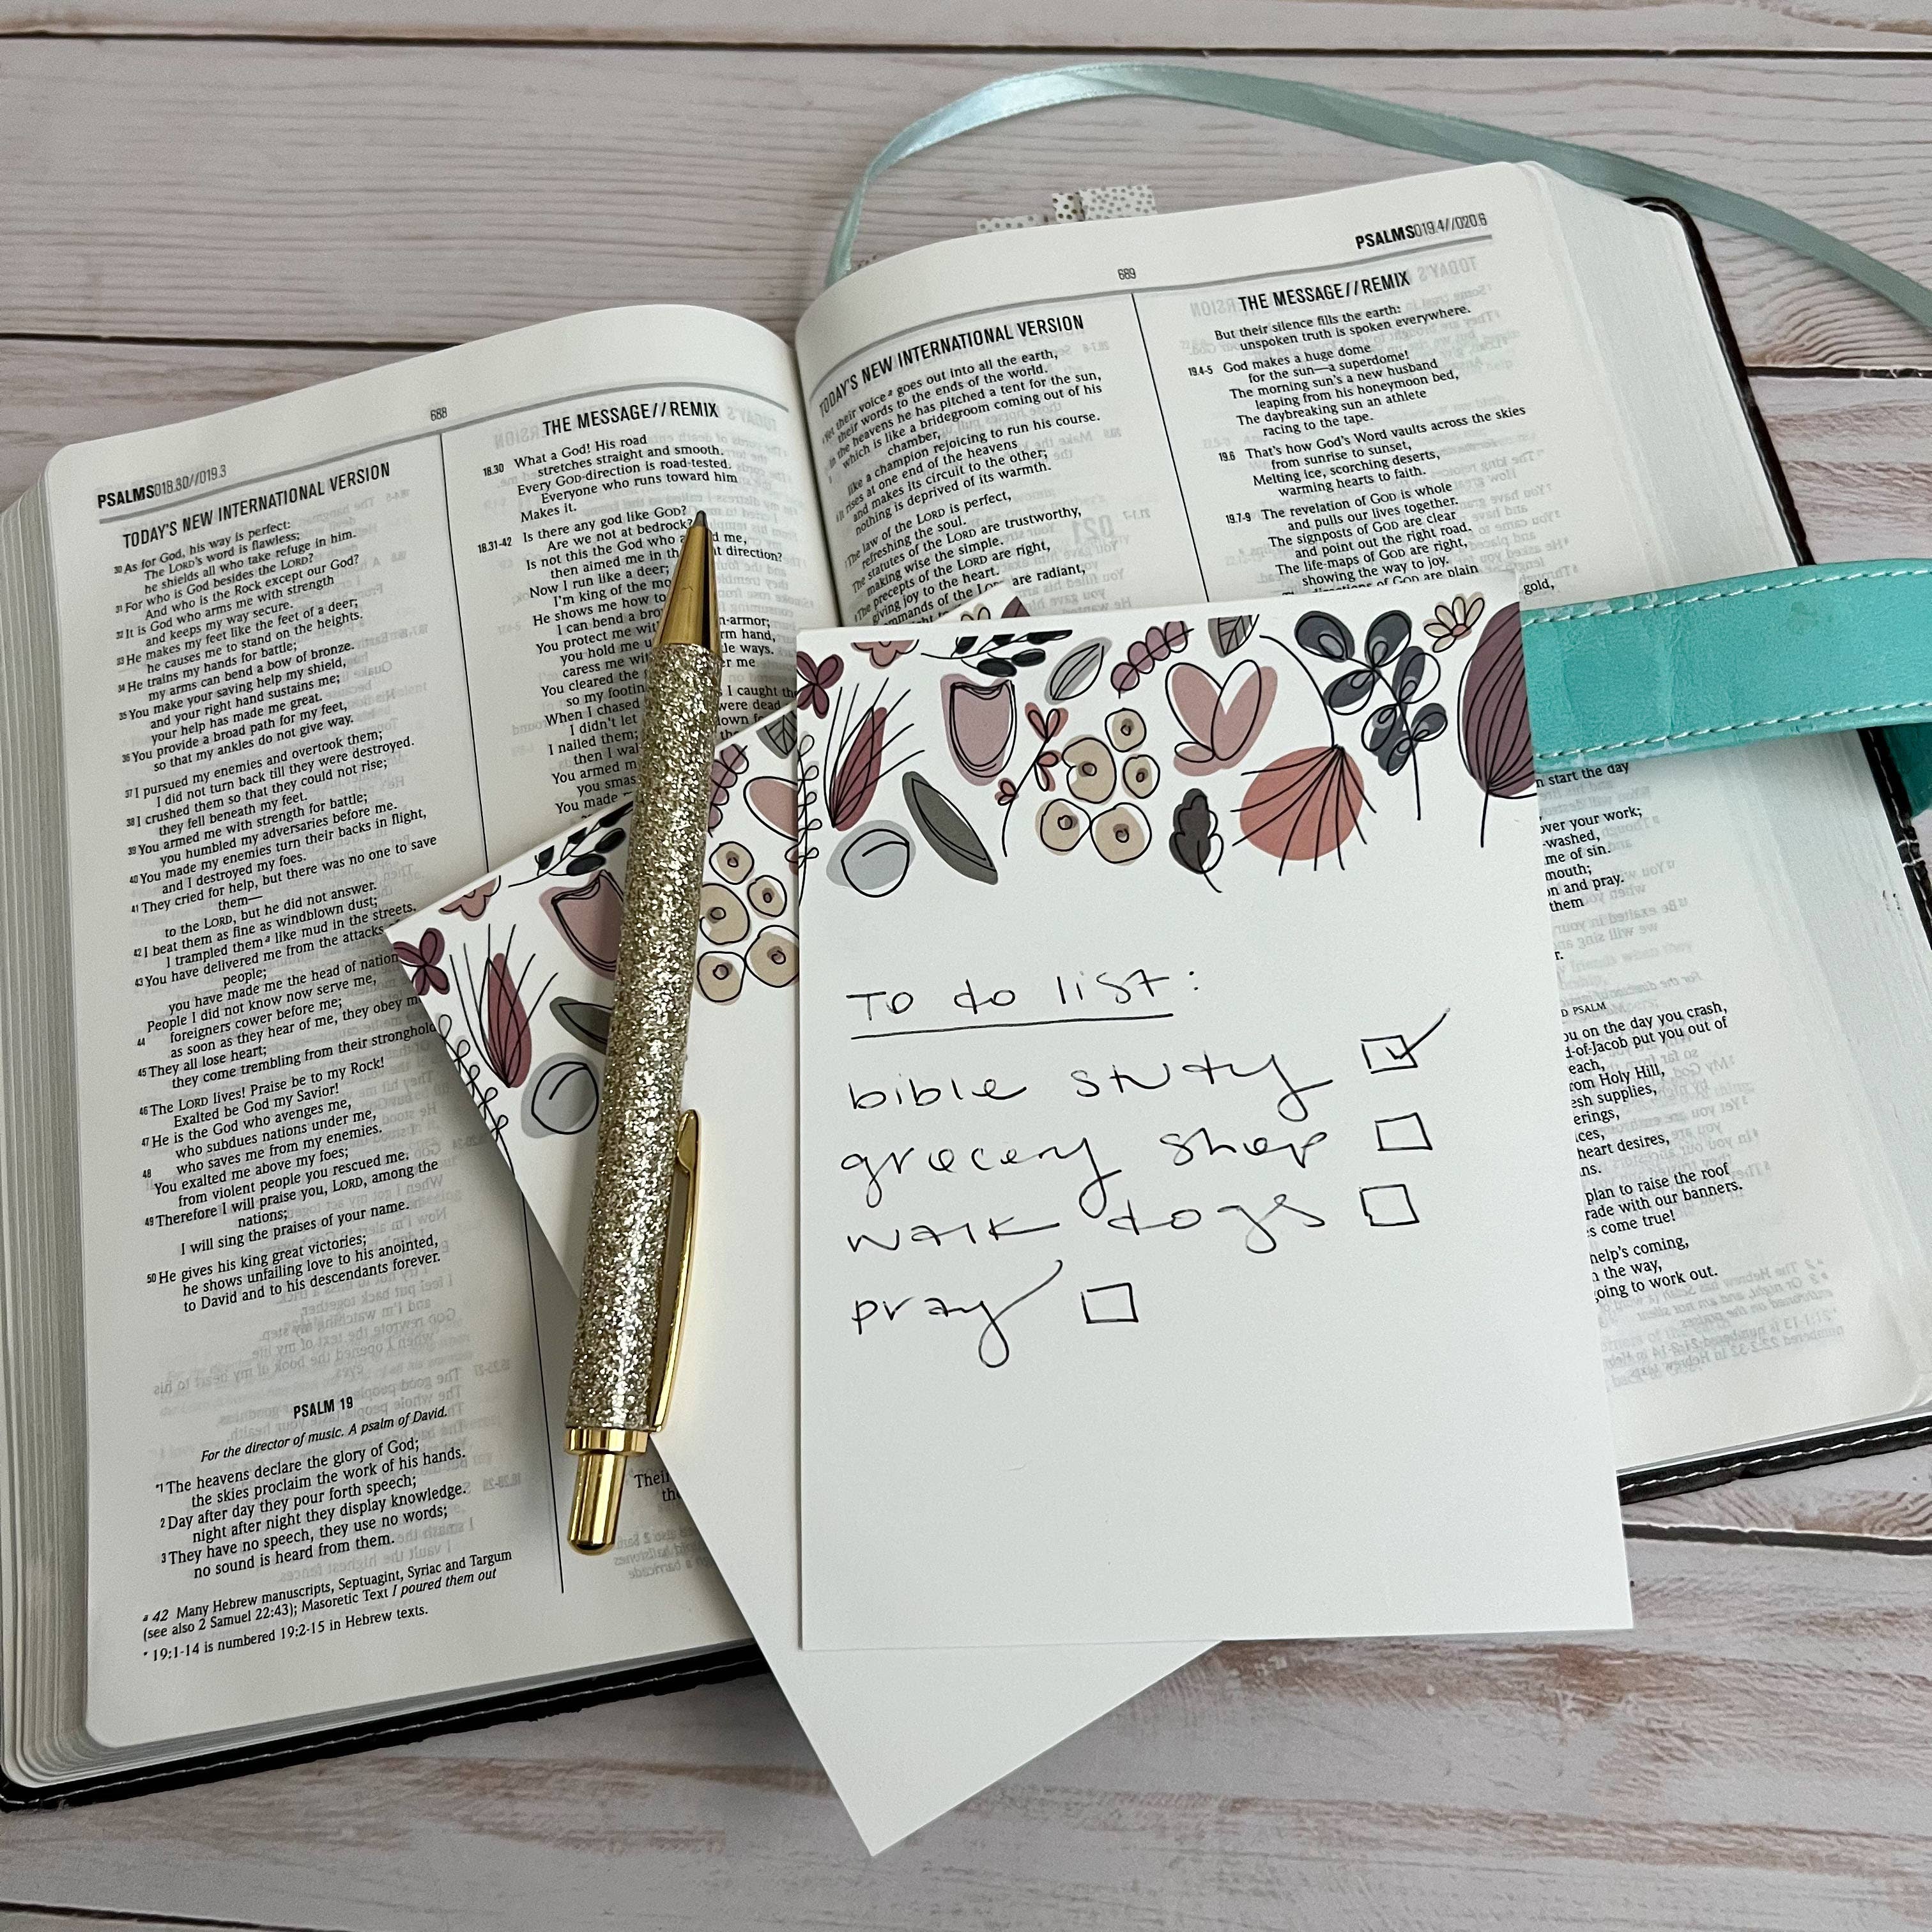 PSALMS018.30//019.3
688
TODAY'S NEW INTERNATIONAL VERSION
30 As for God, his way is perfect:
The LORD's word is flawless;
he shields all who take refuge in him.
31 For who is God besides the LORD?
And who is the Rock except our God?
32 It is God who arms me with strength
and keeps my way secure.
33 He makes my feet like the feet of a deer;
he causes me to stand on the heights.
34 He trains my hands for battle;
my arms can bend a bow of bronze.
35 You make your saving help my shield,
and your right hand sustains me;
your help has made me great.
36 You provide a broad path for my feet,
so that my ankles do not give way.
37 I pursued my enemies and overtook them;
I did not turn back till they were destroyed.
38 I crushed them so that they could not rise;
they fell beneath my feet.
39 You armed me with strength for battle;
you humbled my adversaries before me.
40 You made my enemies turn their backs in flight,
and I destroyed my foes.
41 They cried for help, but there was no one to save
them—
to the LORD, but he did not answer.
42 I beat them as fine as windblown dust;
I trampled them a like mud in the streets.
43 You have delivered me from the attacks
people;
you have made me the head of nation
People I did not know now serve me,
44 foreigners cower before me;
as soon as they hear of me, they obey m
45 They all lose heart;
they come trembling from their stronghold
46 The LORD lives! Praise be to my Rock!
Exalted be God my Savior!
47 He is the God who avenges me,
who subdues nations under me,
48 who saves me from my enemies.
You exalted me above my foes;
from violent people you rescued me.
49 Therefore I will praise you, LORD, among the
nations;
I will sing the praises of your name.
50 He gives his king great victories;
he shows unfailing love to his anointed,
to David and to his descendants forever.
PSALM 19
For the director of music. A psalm of David.
*1 The heavens declare the glory of God;
the skies proclaim the work of his hands.
2 Day after day they pour forth speech;
night after night they display knowledge.
3 They have no speech, they use no words;
no sound is heard from them.
a 42 Many Hebrew manuscripts, Septuagint, Syriac and Targum
(see also 2 Samuel 22:43); Masoretic Text I poured them out
* 19:1-14 is numbered 19:2-15 in Hebrew texts.
THE MESSAGE//REMIX
18.30 What a God! His road
stretches straight and smooth.
Every GOD-direction is road-tested.
Everyone who runs toward him
Makes it.
18.31-42 Is there any god like GOD?
Are we not at bedrock?
Is not this the God who a d me,
then aimed me in th t direction?
Now I run like a deer;
I'm king of the mo
He shows me how to
I can bend a bro n-armor;
You protect me wi rm hand,
you hold me u le ways.
caress me wi er me
You cleared the
so my footin I caught th
When I chased were dead
I didn't let down f
I nailed them; the
then I wal
You armed m
you smas
You made
Their
th
689
PSALMS019.4//020.6
TODAY'S NEW INTERNATIONAL VERSION
their voice a goes out into all the earth,
their words to the ends of the world.
the heavens he has pitched a tent for the sun,
which is like a bridegroom coming out of his
chamber,
like a champion rejoicing to run his course.
rises at one end of the heavens
and makes its circuit to the other;
nothing is deprived of its warmth.
The law of the LORD is perfect,
refreshing the soul.
The statutes of the LORD are trustworthy,
making wise the simple.
The precepts of the LORD are right,
giving joy to the heart.
mmands of the are radiant,
THE MESSAGE//REMIX
But their silence fills the earth:
unspoken truth is spoken everywhere.
19.4-5 God makes a huge dome
for the sun—a superdome!
The morning sun's a new husband
leaping from his honeymoon bed,
The daybreaking sun an athlete
racing to the tape.
19.6 That's how God's Word vaults across the skies
from sunrise to sunset,
Melting ice, scorching deserts,
warming hearts to faith.
19.7-9 The revelation of GOD is whole
and pulls our lives together.
The signposts of GOD are clear
and point out the right road.
The life-maps of GOD are right,
showing the way to joy.
of GOD are plain
gold,
n start the day
over your work;
-washed,
me of sin.
mouth;
n and pray.
them
r.
D PSALM
ou on the day you crash,
d-of-Jacob put you out of
each,
rom Holy Hill,
esh supplies,
erings,
ices,
heart desires,
ns.
plan to raise the roof
rade with our banners.
s come true!
help's coming,
n the way,
going to work out.
To do list:
bible study
grocery shop
walk dogs
pray